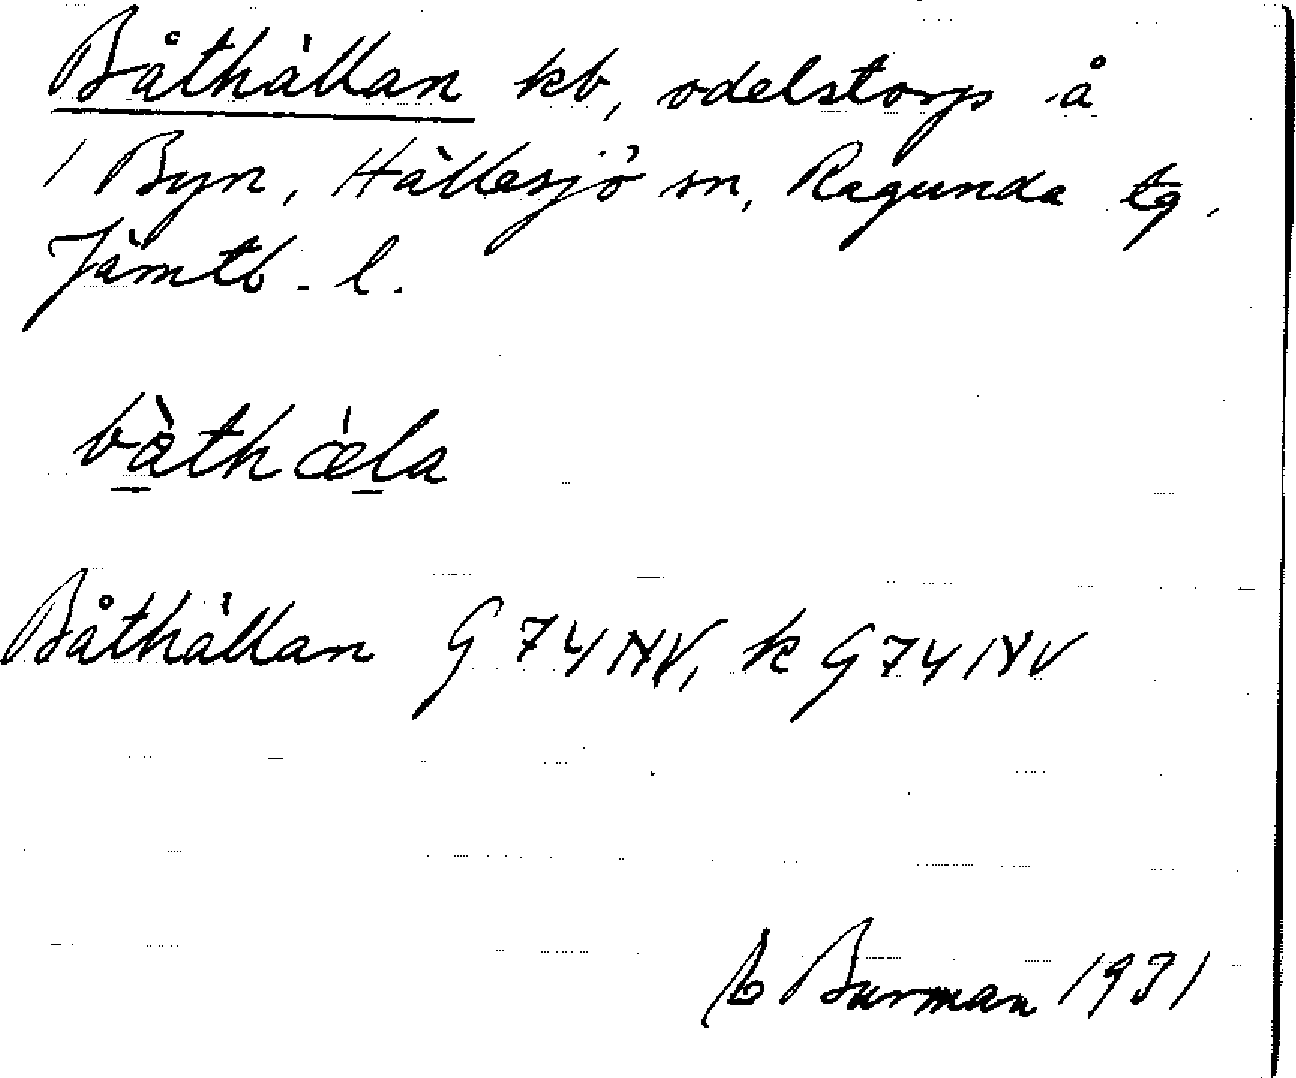 Båthällan kb, odelstorp å
1 Byn, Hällesjö sn, Ragunda tg.
Jämtb. l.
bàthæ̀la
Båthällan G 74 NV, k G 74 NV
Burman 1931